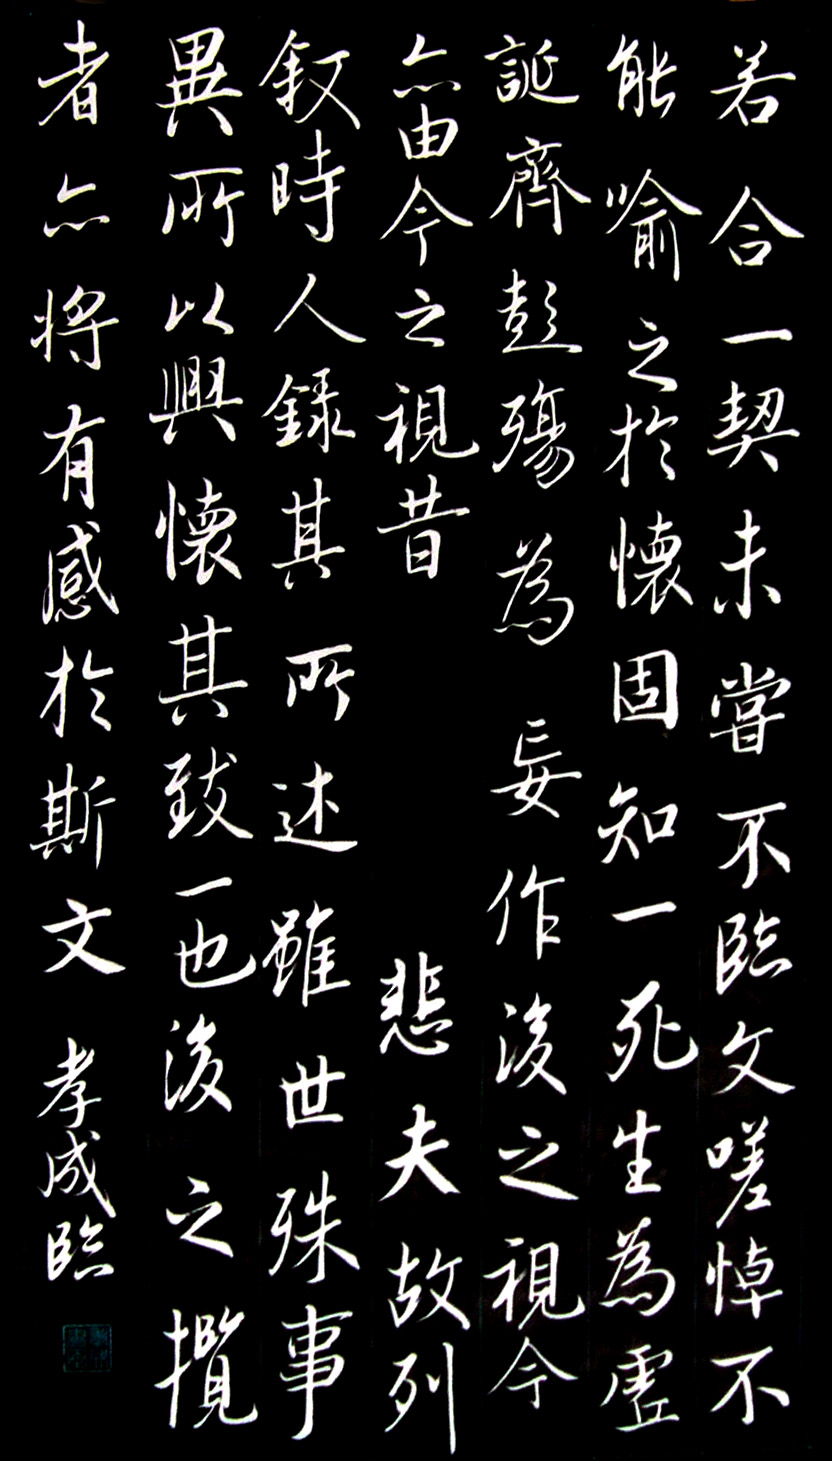 若合一契未嘗不臨文嗟悼不
能喻之於懷固知一死生為虛
誕齊彭殤為妄作後之視今
亦由今之視昔悲夫故列
敘時人錄其所述雖世殊事
異所以興懷其致一也後之攬
者亦將有感於斯文孝成臨